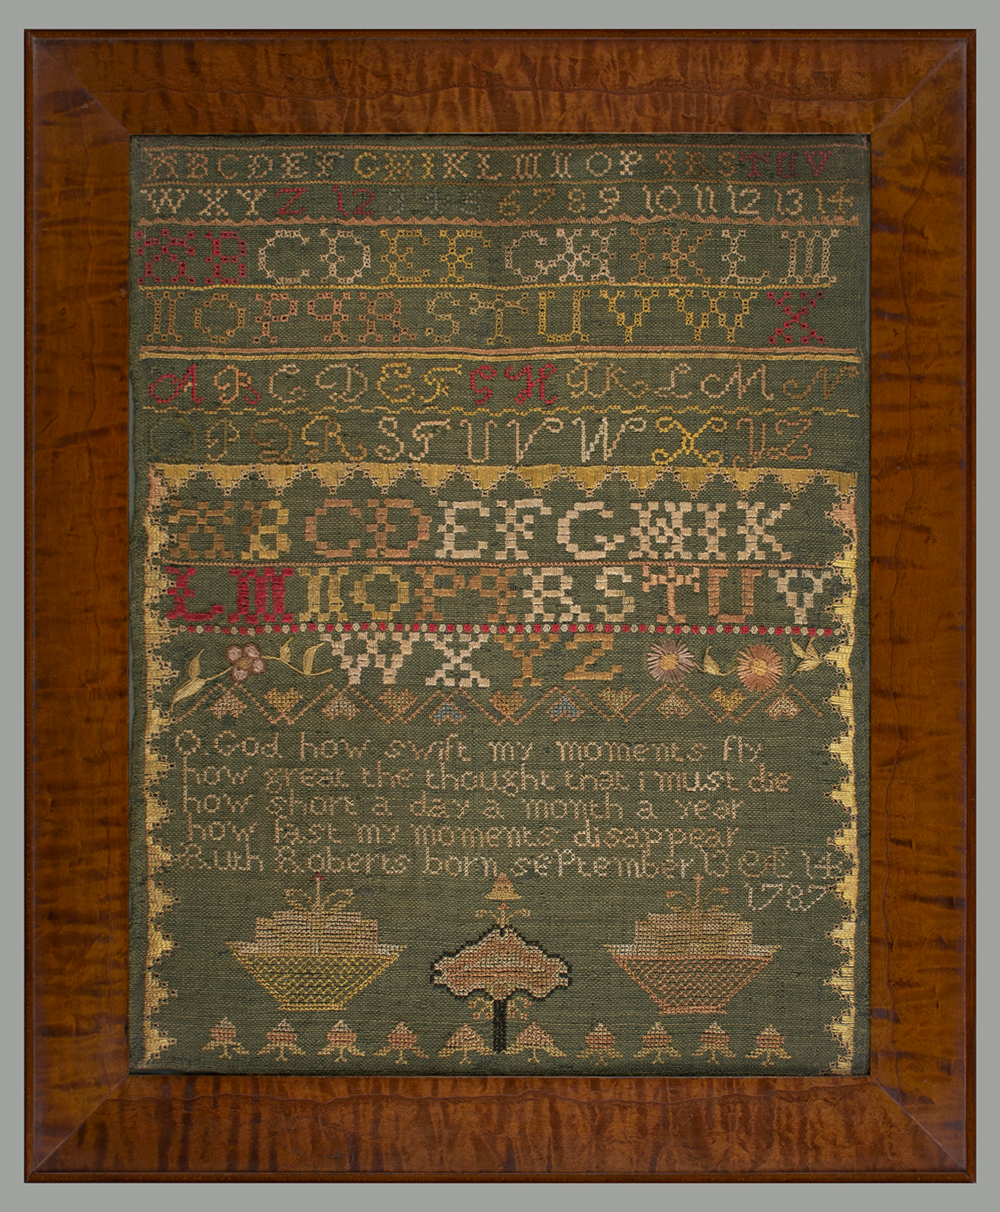 A B C D E F G H I K L M N O P Q R S T U V
W X Y Z 1 2 3 4 5 6 7 8 9 10 11 12 13 14
A B C D E F G H I K L M
N O P Q R S T U V W X
A B C D E F G H I K L M N
O P Q R S T U V W X Y Z
A B C D E F G H I K
L M N O P Q R S T U V
W X Y Z
O God how swift my moments fly
how great the thought that i must die
how short a day a month a year
how fast my moments disappear
Ruth Roberts born september 13 Æ 14
1787